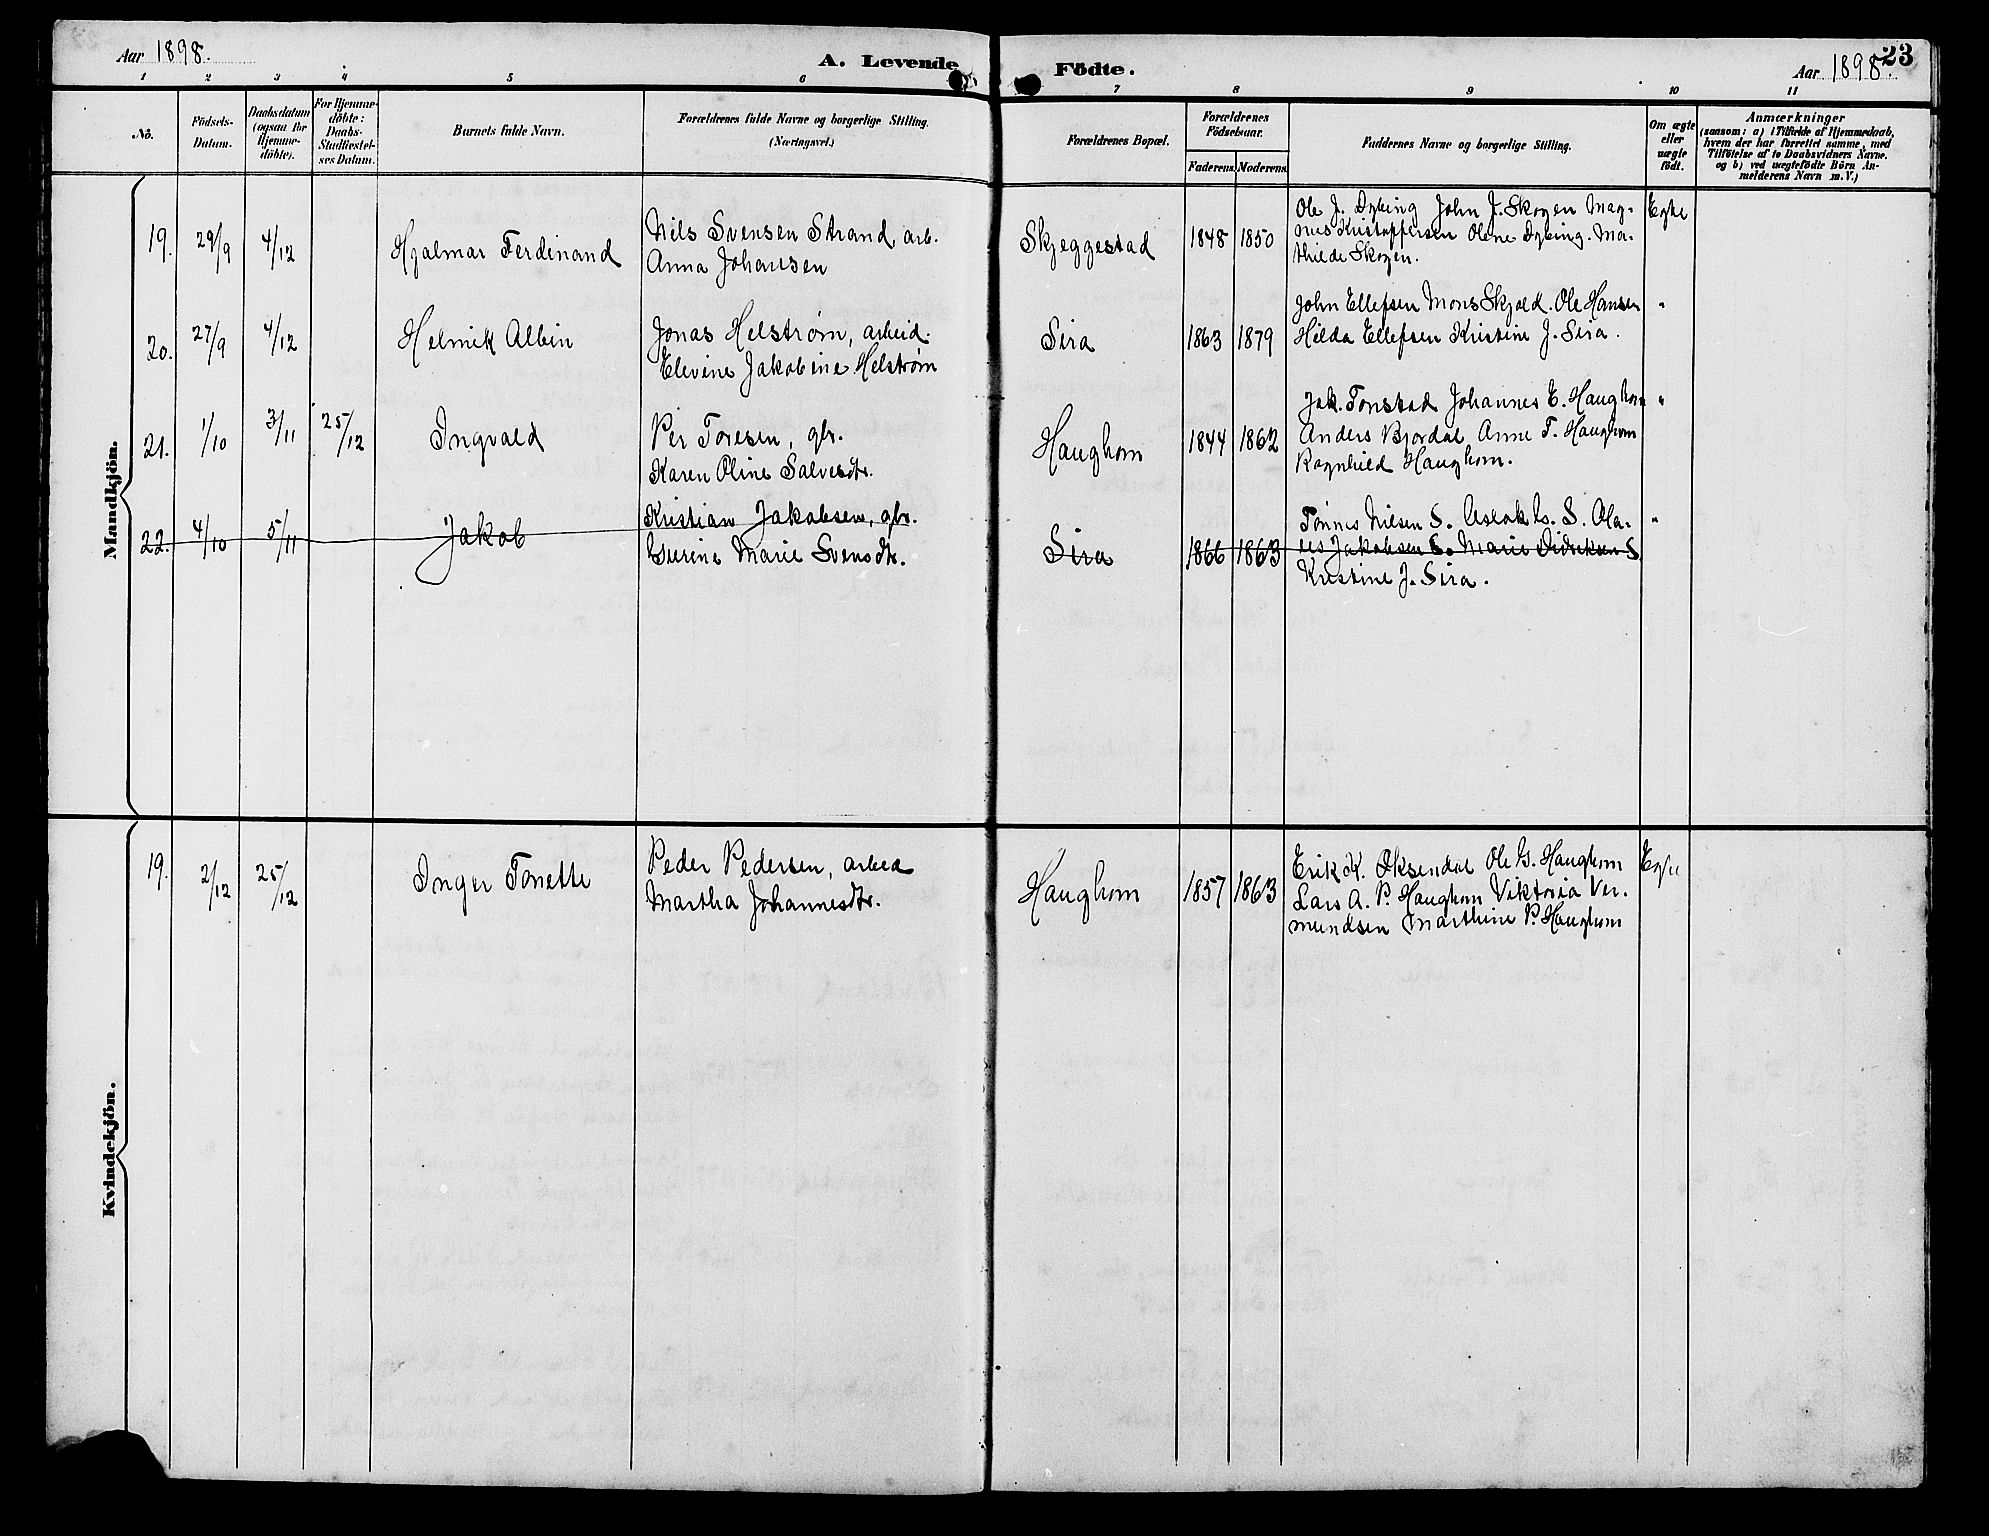 Aar 1898.
A. Levende Födte.
Aar 1898.
23
1 2 3 4 5 6 7 8 9 10 11
No.
Födsels-
Datum.
Daabsdatum
(ogsaa for
Hjemme-
döbte).
For Hjemme-
döbte:
Daabs-
Stadfæstel-
ses Datum.
Barnets fulde Navn.
Forældrenes fulde Navne og borgerlige Stilling.
(Næringsvei.)
Forældrenes Bopæl.
Forældrenes
Födselsaar.
Faderens. Moderens.
Faddernes Navne og borgerlige Stilling.
Om ægte
eller
uægte
födt.
Anmærkninger
(saasom: a) i Tilfælde af Hjemmedaab,
hvem der har forrettet samme, med
Tilföielse af to Daabsvidners Navne,
og b) ved uægtefödte Börn An-
melderens Navn m. V.)
Mandkjön.
19. 29/9 4/12 Hjalmar Ferdinand
Nils Svensen Strand, arb.
Anna Johansen
Skjeggestad 1848 1850
Ole J. Dybing John J. Skogen Mag-
nus Kristoffersen Olene Dybing. Ma-
thilde Skogen.
Egte
20. 27/9 4/12 Helmik Albin
Jonas Helstrøm, arbeid.
Elevine Jakobine Helstrøm
Sira 1863 1879
John Ellefsen Mons Skjold. Ole Hansen
Hilda Ellefsen Kristine J. Sira.
"
21. 1/10 3/11 25/12 Ingvald
Per Toresen, gbr.
Karen Oline Salvesdtr.
Haughom 1844 1862
Jak. Tonstad Johannes E. Haughom
Anders Bjordal Anne T. Haughom
Ragnhild Haughom.
"
22. 4/10 5/11 Jakob
Kristian Jakobsen, gbr.
Marie Svensdtr.
Sira 1866 1863
Tønnes Nilsen S. Aslak S. Ola-
Jakobsen S. Marie Didriksen S.
Kristine J. Sira.
"
Kvindekjön.
19. 2/12 25/12 Inger Tonette
Peder Pedersen, arbeid
Martha Johannesdtr.
Haughom 1857 1863
Erik K. Øksendal Ole G. Haughom
Lars A. P. Haughom Viktoria Ver-
mundsen Marthine P. Haughom
Egte